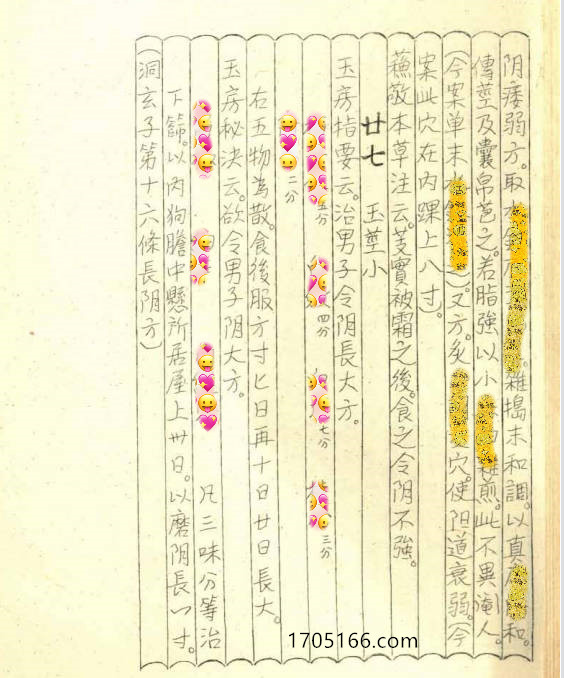 阴痿弱方。取水 雜搗末和調。以真 和。
傳莖及囊帛苞之。若脂強以小 煎。此不異閹人。
(今案单末水 之)又方。灸 穴。使阳道衰弱。(今
案此穴在内踝上八寸)。
蘓敬本草注云。芰實被霜之後。食之令阴不強。
廿七 玉莖小
玉房指要云。治男子令阴長大方。
五分 四分 七分 三分
二分
右五物為散。食後服方寸匕日再十日廿日長大。
玉房秘决云。欲令男子阴大方。
凡三味分等治
下篩。以内狗膽中懸所居屋上卅日。以磨阴長一寸。
(洞玄子第十六條長阴方)
1705166.com